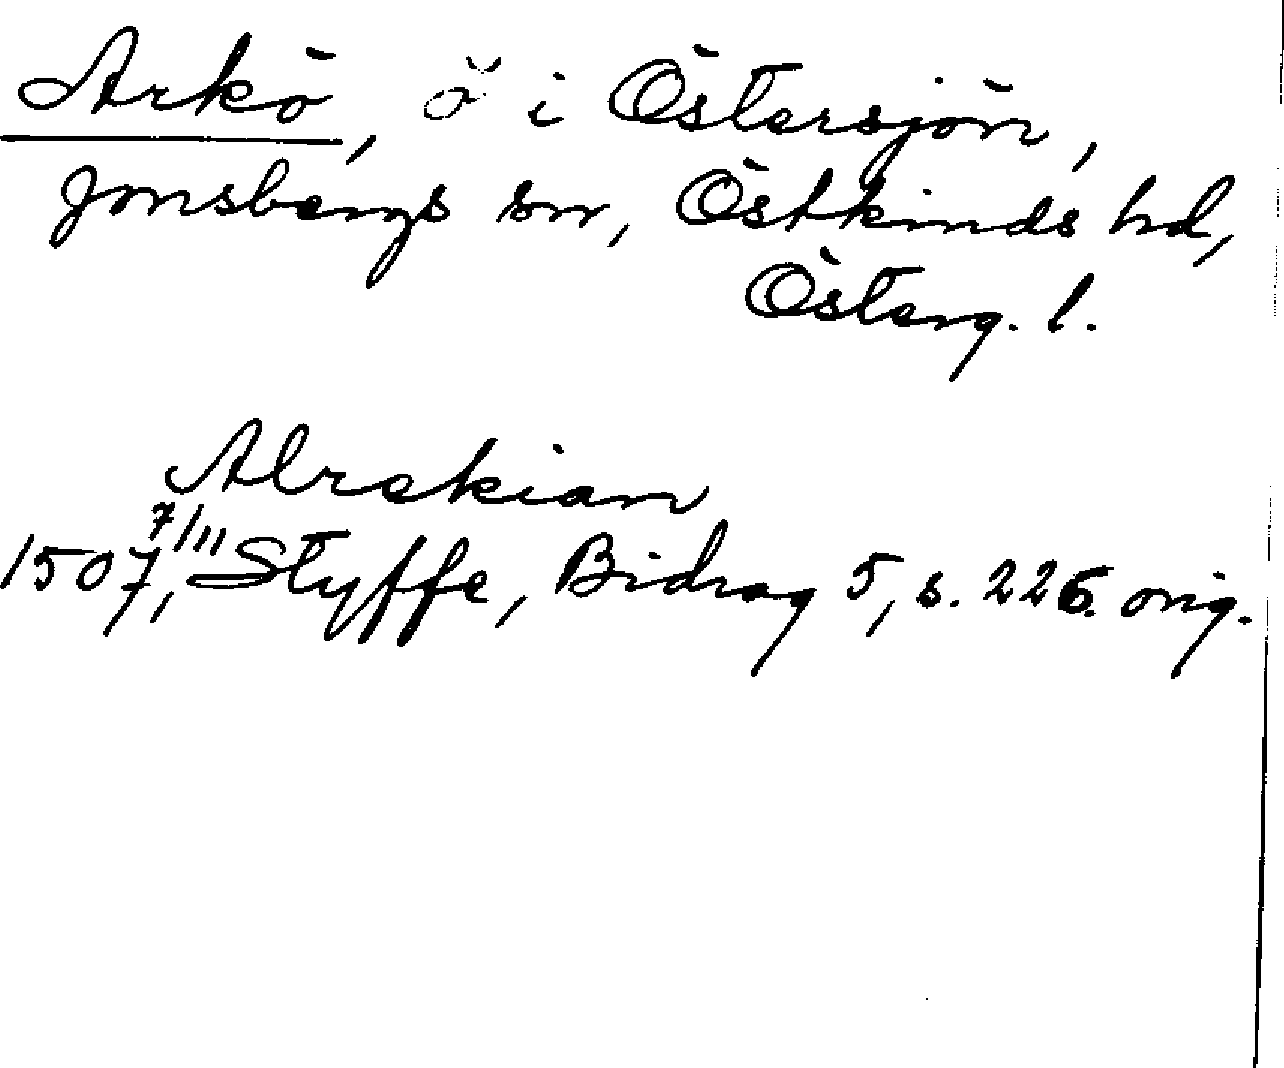 Arkö, ö i Östersjön,
Jonsbergs sn, Östkinds hd,
Österg. l.
Alrekian
1507 7/11, Styffe, Bidrag 5, s. 226. orig.